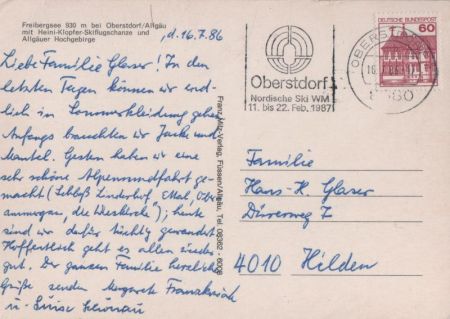 Freibergsee 930 m bei Oberstdorf/Allgäu
mit Heini-Klopfer-Skiflugschanze und
Allgäuer Hochgebirge
, d. 16.7.86
Liebe Familie Glaser! In den
letzten Tagen können wir end-
lich in Sommerkleidung gehen
Anfangs brauchten wir Jacke und
Mantel. Gestern haben wir eine
sehr schöne Alpenrundfahrt ge-
macht (Schloß Linderhof, Ettal, Ober-
ammergau, die Wieskirche); heute
sind wir dafür tüchtig gewandert
Hoffentlich geht es allen
gut. Der ganzen Familie herzliche
Grüße senden Margarete
u. Luise Schönau
Franz Milz-Verlag, Füssen/Allgäu, Tel. 08362 -
OBERSTDORF
16
8980
Oberstdorf
Nordische Ski WM
11. bis 22. Feb. 1987
DEUTSCHE BUNDESPOST
60
Familie
Hans-H. Glaser
Dürerweg 7
4010 Hilden